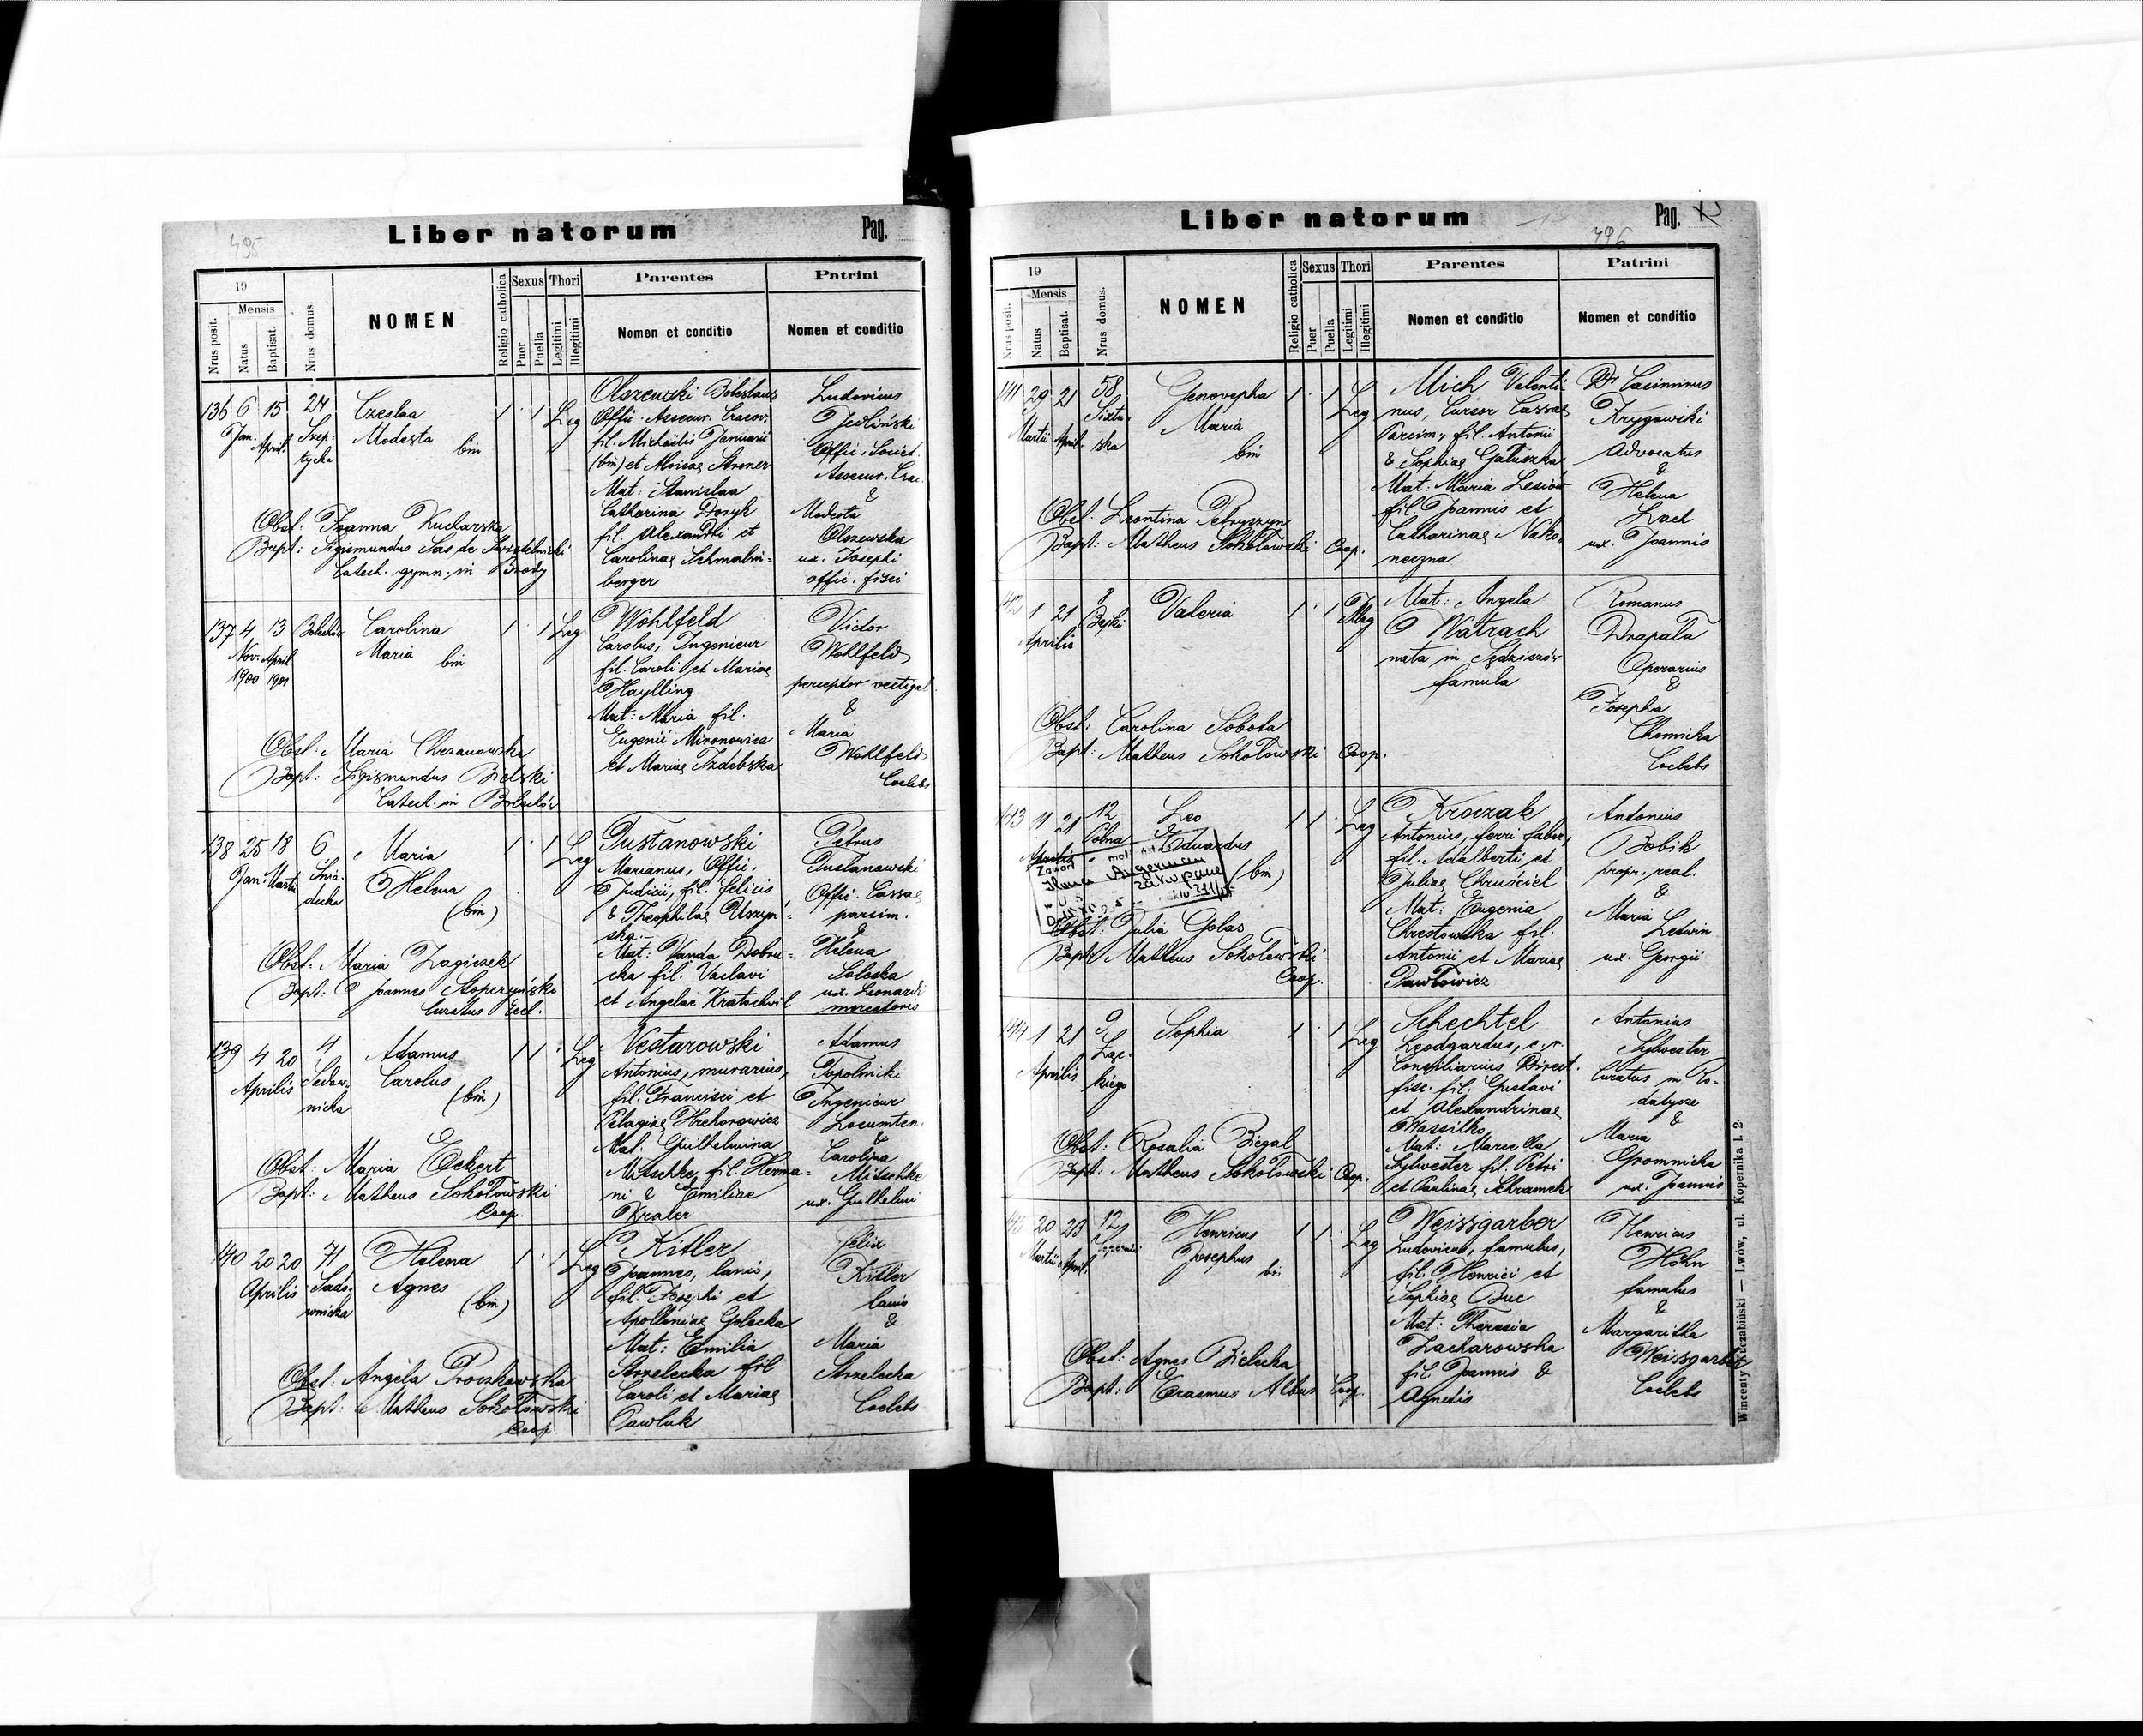 Liber natorum
Pag.
495
19
Mensis
Nrus posit.
Natus
Baptisat.
Nrus domus.
NOMEN
Religio catholica
Sexus
Puer
Puella
Thori
Legitimi
Illegitimi
Parentes
Nomen et conditio
Patrini
Nomen et conditio
136 6 15 24
Jan. April. Szep-
tycka
Czeslaa
Modesta
bin
1 · 1 Leg
Olszewski Boleslaus
Offic. Assecur. Cracov.
fil. Michaëlis Januarii
(bin) et Aloisae Stroner
Mat: Stanislaa
Catherina Doryk
fil. Alexandri et
Carolinae Schmalen-
berger
Ludovicus
Jedliński
Offic. Societ.
Assecur. Crac.
&
Modesta
Olszewska
ux. Josephi
offic. fisci
Obst: Joanna Kucharska
Bapt: Sigismundus Sas de Swistelnicki
Catech. gymn. in Brody
137 4 13 Bolechów
Nov. April
1900 1901
Carolina
Maria
bin
1 · 1 Leg
Wohlfeld
Carolus, Ingenieur
fil. Caroli et Mariae
Haylling
Mat: Maria fil.
Eugenii Mironowicz
et Mariae Izdebska
Victor
Wohlfeld
perceptor vectigal
&
Maria
Wohlfeld
Coelebs
Obst: Maria Chrzanowska
Bapt: Sigismundus Bielski
Catech. in Bolechów
138 25 18 6
Jan. Martii Śnia-
decka
Maria
Helena
(bin)
1 · 1 Leg
Tustanowski
Marianus, Offic.
Judicii, fil. Felicis
& Theophilae Uszyń-
ska.
Mat: Vanda Dobru-
cka fil. Vaclavi
et Angelae Kratochwil
Petrus
Tustanowski
Offic. Cassae
parcim.
&
Helena
Solecka
ux. Leonardi
mercatoris
Obst: Maria Zagiczek
Bapt: Joannes Stopczyński
Curatus Eccl.
139 4 20 4
Aprilis Sadow-
nicka
Adamus
Carolus
(bin)
1 1 · Leg
Nestarowski
Antonius, murarius,
fil. Francisci et
Pelagiae Hrehorowicz
Mat: Guilhelmina
Mitschke, fil. Herma-
ni & Emiliae
Kraler
Adamus
Topolnicki
Ingenieur
Locumten.
&
Carolina
Mitschke
ux. Guilhelmi
Obst: Maria Eckert
Bapt: Matheus Sokołowski
Coop.
140 20 20 71
Aprilis Sado-
wnicka
Helena
Agnes
(bin)
1 · 1 Leg
Kitler
Joannes, lanio,
fil. Josephi et
Apolloniae Golacka
Mat: Emilia
Strzelecka fil
Caroli et Mariae
Pawluk
Felix
Kitler
lanio
&
Maria
Strzelecka
Coelebs
Obst: Angela Proczkowska
Bapt: Matheus Sokołowski
Coop
Liber natorum
Pag.
496
19
Mensis
Nrus posit.
Natus
Baptisat.
Nrus domus.
NOMEN
Religio catholica
Sexus
Puer
Puella
Thori
Legitimi
Illegitimi
Parentes
Nomen et conditio
Patrini
Nomen et conditio
141 29 21 58
Martii April. Sixtu-
ska
Genovepha
Maria
bin
1 · 1 Leg
Mich Valenti-
nus, Cursor Cassae
Parcim., fil. Antonii
& Sophiae Gałuszka
Mat: Maria Lesiów
fil. Joannis et
Catharinae Nako-
neczna
Dr Casimirus
Krygowski
Advocatus
&
Helena
Lach
ux. Joannis
Obst: Leontina Petryszyn
Bapt: Matheus Sokołowski Coop.
142 1 21
Aprilis
Valeria
1 · 1 Illeg
Mat: Angela
Watrach
nata in Sędziszów
famula
Romanus
Drapała
Operarius
&
Josepha
Chomicka
Coelebs
Obst: Carolina Sobota
Bapt: Matheus Sokołowski Coop.
143 11 21 12
Aprilis Polna
Leo
Eduardus
(bin)
1 1 · Leg
Kroczak
Antonius, ferri faber,
fil. Adalberti et
Juliae Chruściel
Mat: Eugenia
Chrestowska fil.
Antonii et Mariae
Pawłowicz
Antonius
Bobik
propr. real.
&
Maria
Ledwin
ux. Georgii
Zawarł
Angerman
Zakopane
Obst: Julia Golas
Bapt: Matheus Sokołowski
Coop.
144 1 21 9
Aprilis Łąc-
kiego
Sophia
1 · 1 Leg
Schechtel
Leodgardus, c.r.
Consiliarius Direct.
fisc. fil. Gustavi
et Alexandrinae
Wassilko
Mat: Marcella
Sylwester fil. Petri
et Paulinae Schramek
Antonius
Sylwester
Curatus in Ro-
datycze
&
Maria
Gromnicka
ux. Joannis
Obst: Rosalia Biegal
Bapt: Matheus Sokołowski Coop.
145 20 23 12
Martii April.
Henricus
Josephus
bin
1 1 · Leg
Weissgarber
Ludovicus, famulus,
fil. Henrici et
Sophiae Buc
Mat: Theresia
Zacharowska
fil. Joannis &
Agnetis
Henricus
Höhn
famulus
&
Margaritha
Weissgarber
Coelebs
Obst: Agnes Bielecka
Bapt: Erasmus Albus Coop.
Wincenty Kuczabiński — Lwów, ul. Kopernika l. 2.